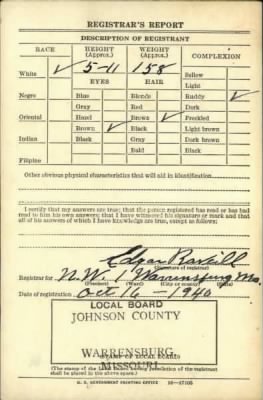 REGISTRAR'S REPORT
DESCRIPTION OF REGISTRANT
RACE HEIGHT (Approx.) WEIGHT (Approx.) COMPLEXION
White ✓ 5-11 158 Sallow
EYES HAIR Light
Negro Blue Blonde Ruddy ✓
Gray Red Dark
Oriental Hazel Brown ✓ Freckled
Brown ✓ Black Light brown
Indian Black Gray Dark brown
Bald Black
Filipino
Other obvious physical characteristics that will aid in identification
I certify that my answers are true; that the person registered has read or has had
read to him his own answers; that I have witnessed his signature or mark and that
all of his answers of which I have knowledge are true, except as follows:
Edgar
(Signature of registrar)
Registrar for N. W. 1 Warrensburg Mo.
(Precinct) (Ward) (City or county) (State)
Date of registration Oct 16 - 1940
LOCAL BOARD
JOHNSON COUNTY
WARRENSBURG
(STAMP OF LOCAL BOARD)
MISSOURI
(The stamp of the Local Board having jurisdiction of the registrant
shall be placed in the above space.)
U. S. GOVERNMENT PRINTING OFFICE 16-17105